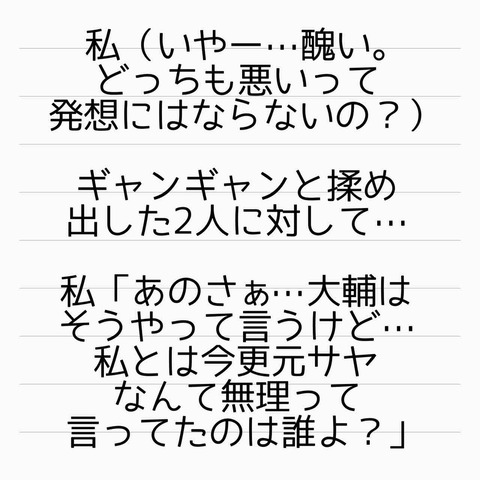 私（いやー…醜い。
どっちも悪いって
発想にはならないの？）
ギャンギャンと揉め
出した2人に対して…
私「あのさぁ…大輔は
そうやって言うけど…
私とは今更元サヤ
なんて無理って
言ってたのは誰よ？」